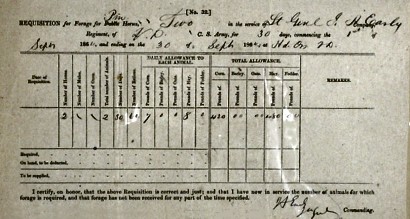 [No. 32.]
REQUISITION for Forage for Public Horses, Two in the service of Lt Genl J. A. Early
Regiment, of V.D. C. S. Army, for 30 days, commencing the 1st of
Sept 186 and ending on the 30 of Sept 186 at Hd. Qrs V.D.
DAILY ALLOWANCE TO EACH ANIMAL. TOTAL ALLOWANCE.
Date of Requisition. Number of Horses. Number of Mules. Number of Oxen. Total number of Animals. Number of Days. Number of Rations. Pounds of Corn. Pounds of Barley. Pounds of Oats. Pounds of Hay. Pounds of Fodder. Corn. Barley. Oats. Hay. Fodder. REMARKS.
Pounds of Pounds of Pounds of Pounds of Pounds of
2 2 30 60 7 8 420 480
Required,
On hand, to be deducted.
To be supplied,
I certify, on honor, that the above Requisition is correct and just; and that I have now in service the number of animals for which forage is required, and that forage has not been received for any part of the time specified.
Commanding.